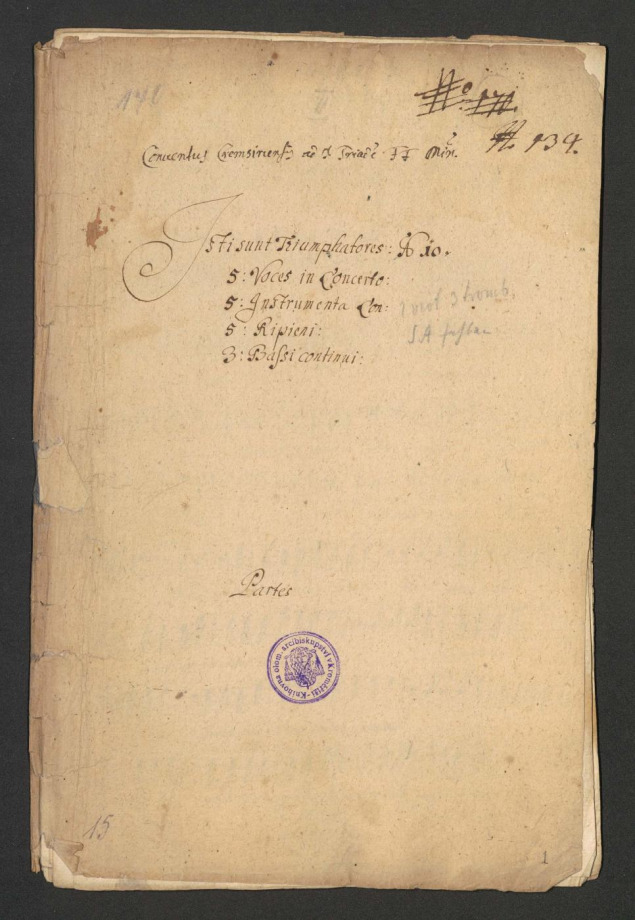 171
V
No. 171.
No 134.
Conventus Cremsiriensis
Min.
Isti sunt Triumphatores: A 10.
5: Voces in Concerto:
5: Instrumenta Con:
1 viol 3 tromb.
5: Ripieni:
S A
3: Bassi continui:
Partes
Knihovna olom. arcibiskupství v Kroměříži
15
1